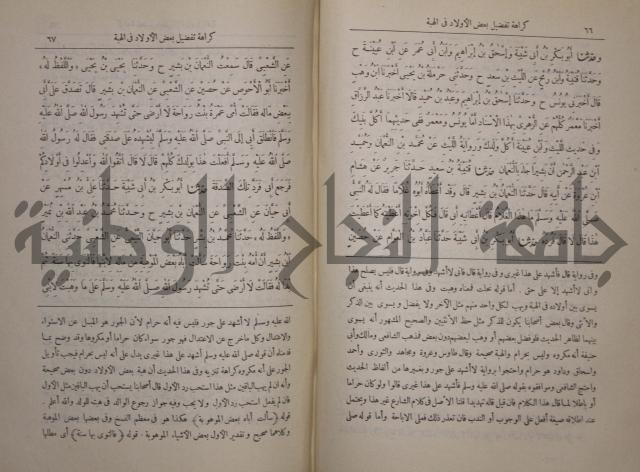 ٦٦
كراهة تفضيل بعض الأولاد فى الهبة
وحدثنا أبو بكر بن أبى شيبة وإسحق بن إبراهيم وابن أبى عمر عن ابن عيينة ح
وحدثنا قتيبة وابن رمح عن الليث بن سعد ح وحدثنى حرملة بن يحيى أخبرنا ابن وهب
قال أخبرنى يونس ح وحدثنا إسحق بن إبراهيم وعبد بن حميد قالا أخبرنا عبد الرزاق
أخبرنا معمر كلهم عن الزهرى بهذا الإسناد أما يونس ومعمر ففى حديثهما أكل بنيك
وفى حديث الليث وابن عيينة أكل ولدك ورواية الليث عن محمد بن النعمان وحميد
ابن عبد الرحمن أن بشيرا جاء بالنعمان حدثنا قتيبة بن سعيد حدثنا جرير عن هشام
ابن عروة عن أبيه قال حدثنا النعمان بن بشير قال وقد أعطاه أبوه غلاما فقال له النبى
صلى الله عليه وسلم ما هذا الغلام قال أعطانيه أبى قال فكل إخوته أعطيته كما أعطيت
هذا قال لا قال فرده حدثنا أبو بكر بن أبى شيبة حدثنا عباد بن العوام عن حصين
وفى رواية قال فأشهد على هذا غيرى وفى رواية قال فانى لا أشهد
بين أولاده فى الهبة ويهب لكل واحد منهم مثل الآخر ولا يفضل ويسوى بين الذكر
والأنثى وقال بعض أصحابنا يكون للذكر مثل حظ الأنثيين والصحيح المشهور أنه يسوى
بينهما لظاهر الحديث فلو فضل بعضهم أو وهب لبعضهم دون بعض فمذهب الشافعى ومالك وأبى
حنيفة أنه مكروه وليس بحرام والهبة صحيحة وقال طاوس وعروة ومجاهد والثورى وأحمد
وإسحق وداود هو حرام واحتجوا برواية لا أشهد على جور وبغيرها من ألفاظ الحديث
واحتج الشافعى وموافقوه بقوله صلى الله عليه وسلم فأشهد على هذا غيرى قالوا ولو كان حراما
أو باطلا لما قال هذا الكلام فان قيل قاله تهديدا قلنا الأصل فى كلام الشارع غير هذا ويحتمل
عند اطلاقه صيغة أفعل على الوجوب أو الندب فان تعذر ذلك فعلى الاباحة وأما قوله صلى
كراهة تفضيل بعض الأولاد فى الهبة
٦٧
عن الشعبى قال سمعت النعمان بن بشير ح وحدثنا يحيى بن يحيى «واللفظ له»
أخبرنا أبو الأحوص عن حصين عن الشعبى عن النعمان بن بشير قال تصدق على أبى
ببعض ماله فقالت أمى عمرة بنت رواحة لا أرضى حتى تشهد رسول الله صلى الله عليه
وسلم فانطلق أبى إلى النبى صلى الله عليه وسلم ليشهده على صدقتى فقال له رسول الله
صلى الله عليه وسلم أفعلت هذا بولدك كلهم قال لا قال اتقوا الله واعدلوا فى أولادكم
فرجع أبى فرد تلك الصدقة حدثنا أبو بكر بن أبى شيبة حدثنا على بن مسهر عن
أبى حيان عن الشعبى عن النعمان بن بشير ح وحدثنا محمد بن عبد الله بن نمير
«واللفظ له» حدثنا محمد بن بشر حدثنا أبو حيان التيمى عن الشعبى حدثنى النعمان
ابن بشير أن أمه بنت رواحة سألت أباه بعض الموهبة من ماله لابنها فالتوى بها سنة ثم
بدا له فقالت لا أرضى حتى تشهد رسول الله صلى الله عليه وسلم على ما وهبت لابنى
الله عليه وسلم لا أشهد على جور فليس فيه أنه حرام لأن الجور هو الميل عن الاستواء
والاعتدال وكل ما خرج عن الاعتدال فهو جور سواء كان حراما أو مكروها وقد وضح بما
قدمناه أن قوله صلى الله عليه وسلم أشهد على هذا غيرى يدل على أنه ليس بحرام فيجب تأويل
الجور على أنه مكروه كراهة تنزيه وفى هذا الحديث أن هبة بعض الأولاد دون بعض صحيحة
وأنه ان لم يهب الباقين مثل هذا استحب رد الأول قال أصحابنا يستحب أن يهب الباقين مثل الأول
فان لم يفعل استحب رد الأول ولا يجب وفيه جواز رجوع الوالد فى هبته للولد والله أعلم.
قوله ﴿سألت أباه بعض الموهوبة﴾ هكذا هو فى معظم النسخ وفى بعضها بعض الموهبة
وكلاهما صحيح وتقدير الأول بعض الأشياء الموهوبة. قوله ﴿فالتوى بها سنة﴾ أى مطلها
جامعة النجاح الوطنية